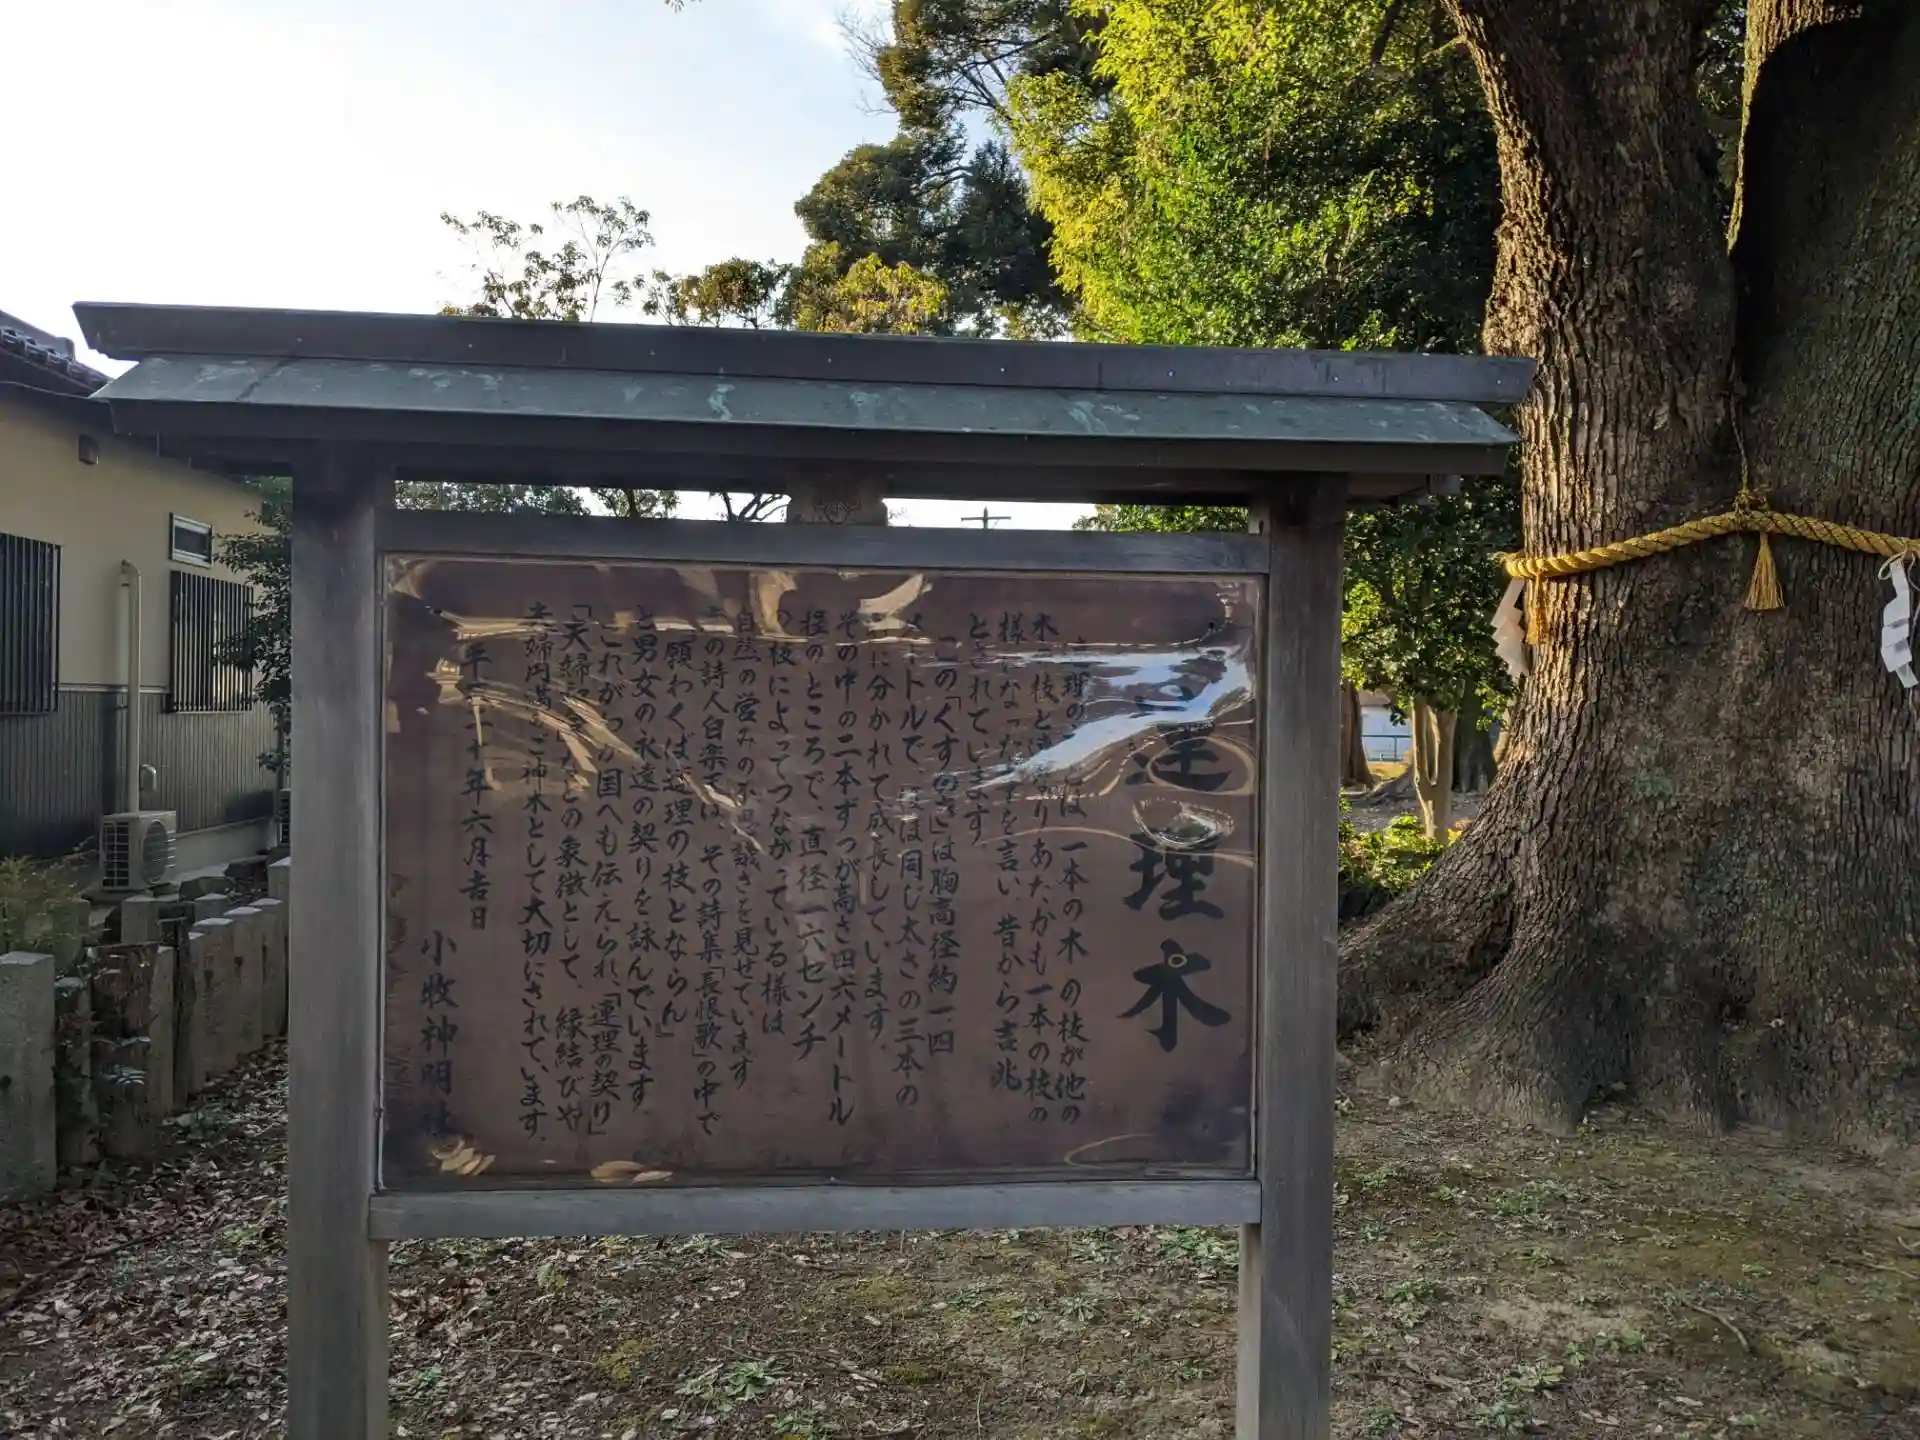 連理木
連理の木とは、一本の木の枝が他の
木の枝と連なりあたかも一本の枝の
様になった木を言い、昔から吉兆
とされています。
この「くすのき」は胸高径約一四
メートルで、上は同じ太さの三本の
に分かれて成長しています。
その中の二本ずつが高さ四六メートル
位のところで、直径一六センチ
の枝によってつながっている様は
自然の営みの不思議さを見せています。
の詩人白楽天は、その詩集「長恨歌」の中で
「願わくば連理の枝とならん」
と男女の永遠の契りを詠んでいます。
これがわが国へも伝えられ、「連理の契り」
「夫婦和合」などの象徴として、縁結びや
夫婦円満のご神木として大切にされています。
年二十年六月吉日
小牧神明社